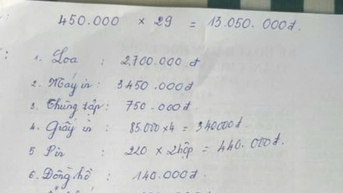 450.000 × 29 = 13.050.000đ.
1. Loa : 2.700.000.đ
2. Máy in : 3450.000đ.
3. Thùng tập : 750.000đ.
4. Giấy in : 85.000×4 = 340000đ.
5. Pin : 220 × 2hộp = 440.000đ.
6. Đồng hồ : 140.000đ.